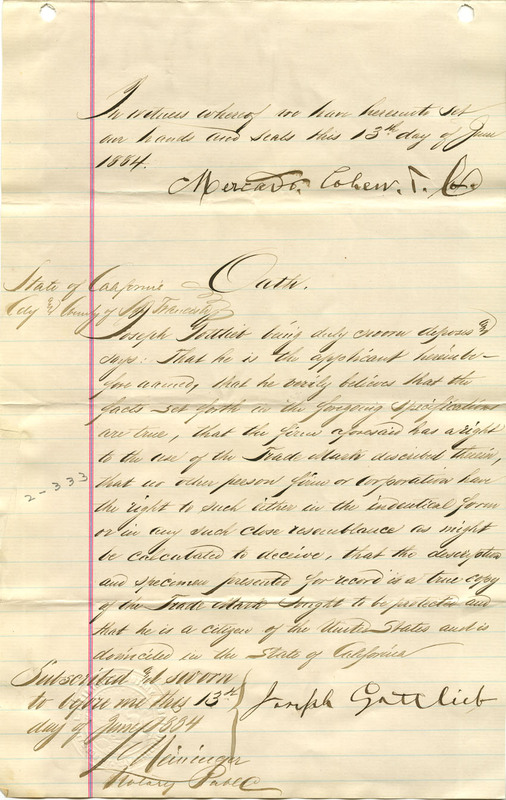 In witness whereof we have hereunto set
our hands and seals this 13th day of June
1884.
Mercado, Cohen, & Co.
Oath.
State of California
City & County of San Francisco
Joseph Gottlieb being duly sworn deposes &
says: That he is the applicant hereinbe-
fore named, that he verily believes that the
facts set forth in the foregoing specifications
are true, that the firm aforesaid has a right
to the use of the Trade Mark described therein,
that no other person firm or corporation have
the right to such either in the indentical form
or in any such close resemblance as might
be calculated to deceive, that the description
and specimen presented for record is a true copy
of the Trade Mark sought to be protected and
that he is a citizen of the United States and is
domiciled in the State of California
2-333
Subscribed & sworn
to before me this 13th
day of June 1884
Joseph Gottlieb
Notary Public